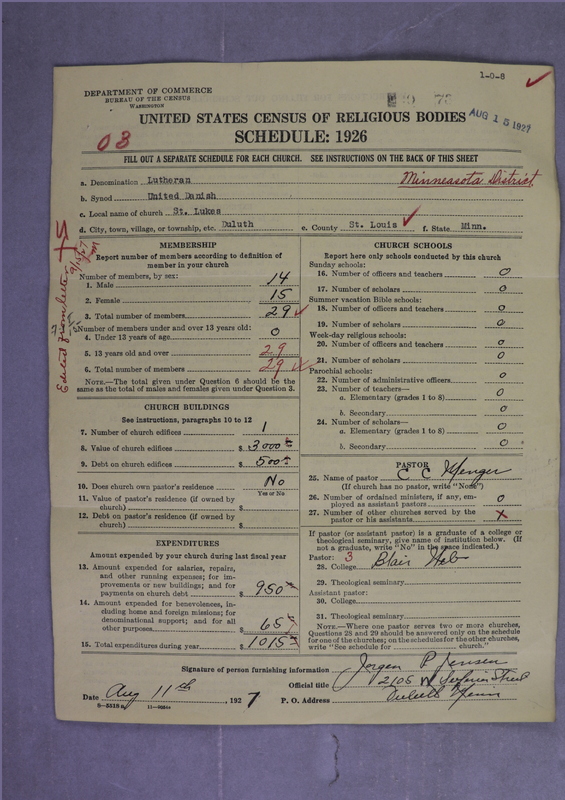 1-0-8
DEPARTMENT OF COMMERCE
BUREAU OF THE CENSUS
WASHINGTON
AUG 15 1927
UNITED STATES CENSUS OF RELIGIOUS BODIES
03
SCHEDULE: 1926
FILL OUT A SEPARATE SCHEDULE FOR EACH CHURCH. SEE INSTRUCTIONS ON THE BACK OF THIS SHEET
a. Denomination Lutheran
Minneasota District
b. Synod United Danish
c. Local name of church St. Lukes
d. City, town, village, or township, etc. Duluth e. County St. Louis f. State Minn.
MEMBERSHIP
Report number of members according to definition of
member in your church
Number of members, by sex:
1. Male 14
2. Female 15
3. Total number of members 29
Number of members under and over 13 years old:
4. Under 13 years of age 0
5. 13 years old and over 29
6. Total number of members 29
NOTE.—The total given under Question 6 should be the
same as the total of males and females given under Question 3.
Edited from letter
CHURCH BUILDINGS
See instructions, paragraphs 10 to 12
7. Number of church edifices 1
8. Value of church edifices $ 3000
9. Debt on church edifices $ 500
10. Does church own pastor's residence? No
Yes or No
11. Value of pastor's residence (if owned by
church) $
12. Debt on pastor's residence (if owned by
church) $
EXPENDITURES
Amount expended by your church during last fiscal year
13. Amount expended for salaries, repairs,
and other running expenses; for im-
provements or new buildings; and for
payments on church debt $ 950
14. Amount expended for benevolences, in-
cluding home and foreign missions; for
denominational support; and for all
other purposes $ 65
15. Total expenditures during year $ 1015
CHURCH SCHOOLS
Report here only schools conducted by this church
Sunday schools:
16. Number of officers and teachers 0
17. Number of scholars 0
Summer vacation Bible schools:
18. Number of officers and teachers 0
19. Number of scholars 0
Week-day religious schools:
20. Number of officers and teachers 0
21. Number of scholars 0
Parochial schools:
22. Number of administrative officers 0
23. Number of teachers—
a. Elementary (grades 1 to 8) 0
b. Secondary 0
24. Number of scholars—
a. Elementary (grades 1 to 8) 0
b. Secondary 0
PASTOR
25. Name of pastor C C
(If church has no pastor, write "None")
26. Number of ordained ministers, if any, em-
ployed as assistant pastors 0
27. Number of other churches served by the
pastor or his assistants x
If pastor (or assistant pastor) is a graduate of a college or
theological seminary, give name of institution below. (If
not a graduate, write "No" in the space indicated.)
Pastor: 3
28. College Blair Neb
29. Theological seminary
Assistant pastor:
30. College
31. Theological seminary
NOTE.—Where one pastor serves two or more churches,
Questions 28 and 29 should be answered only on the schedule
for one of the churches; on the schedules for the other churches,
write "See schedule for church."
Signature of person furnishing information Jorgen P Jensen
Official title 2105 W Superior Street
Date Aug 11th, 1927 P. O. Address Duluth Minn
8-5518a 11-9084